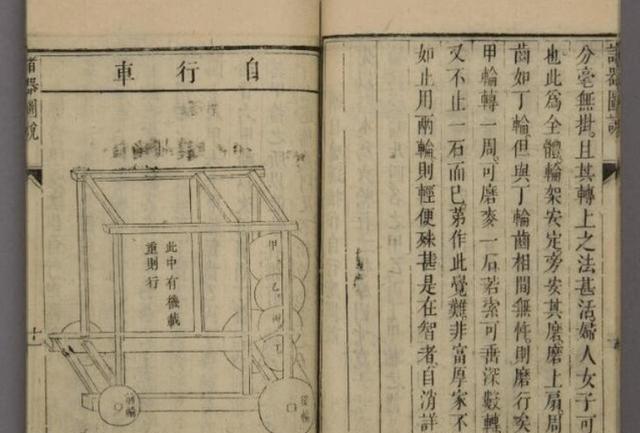 諸器圖說
分毫無掛且其轉上之法甚活婦人女子可
也此爲全體輪架安定旁安其磨磨上扇周
齒如丁輪但與丁輪齒相間無忤則磨行矣
甲輪轉一周可磨麥一石若索可垂深數轉
又不止一石而已第作此覺難非富厚家不
如止用兩輪則輕便殊甚是在智者自消詳
自行車
甲
乙
丙
丁
此中有機載
重則行
後輪
前輪
諸器圖說
十